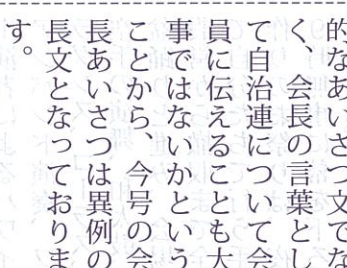 的なあいさつ文でな
く、会長の言葉とし
て自治連について会
員に伝えることも大
事ではないかという
ことから、今号の会
長あいさつは異例の
長文となっておりま
す。